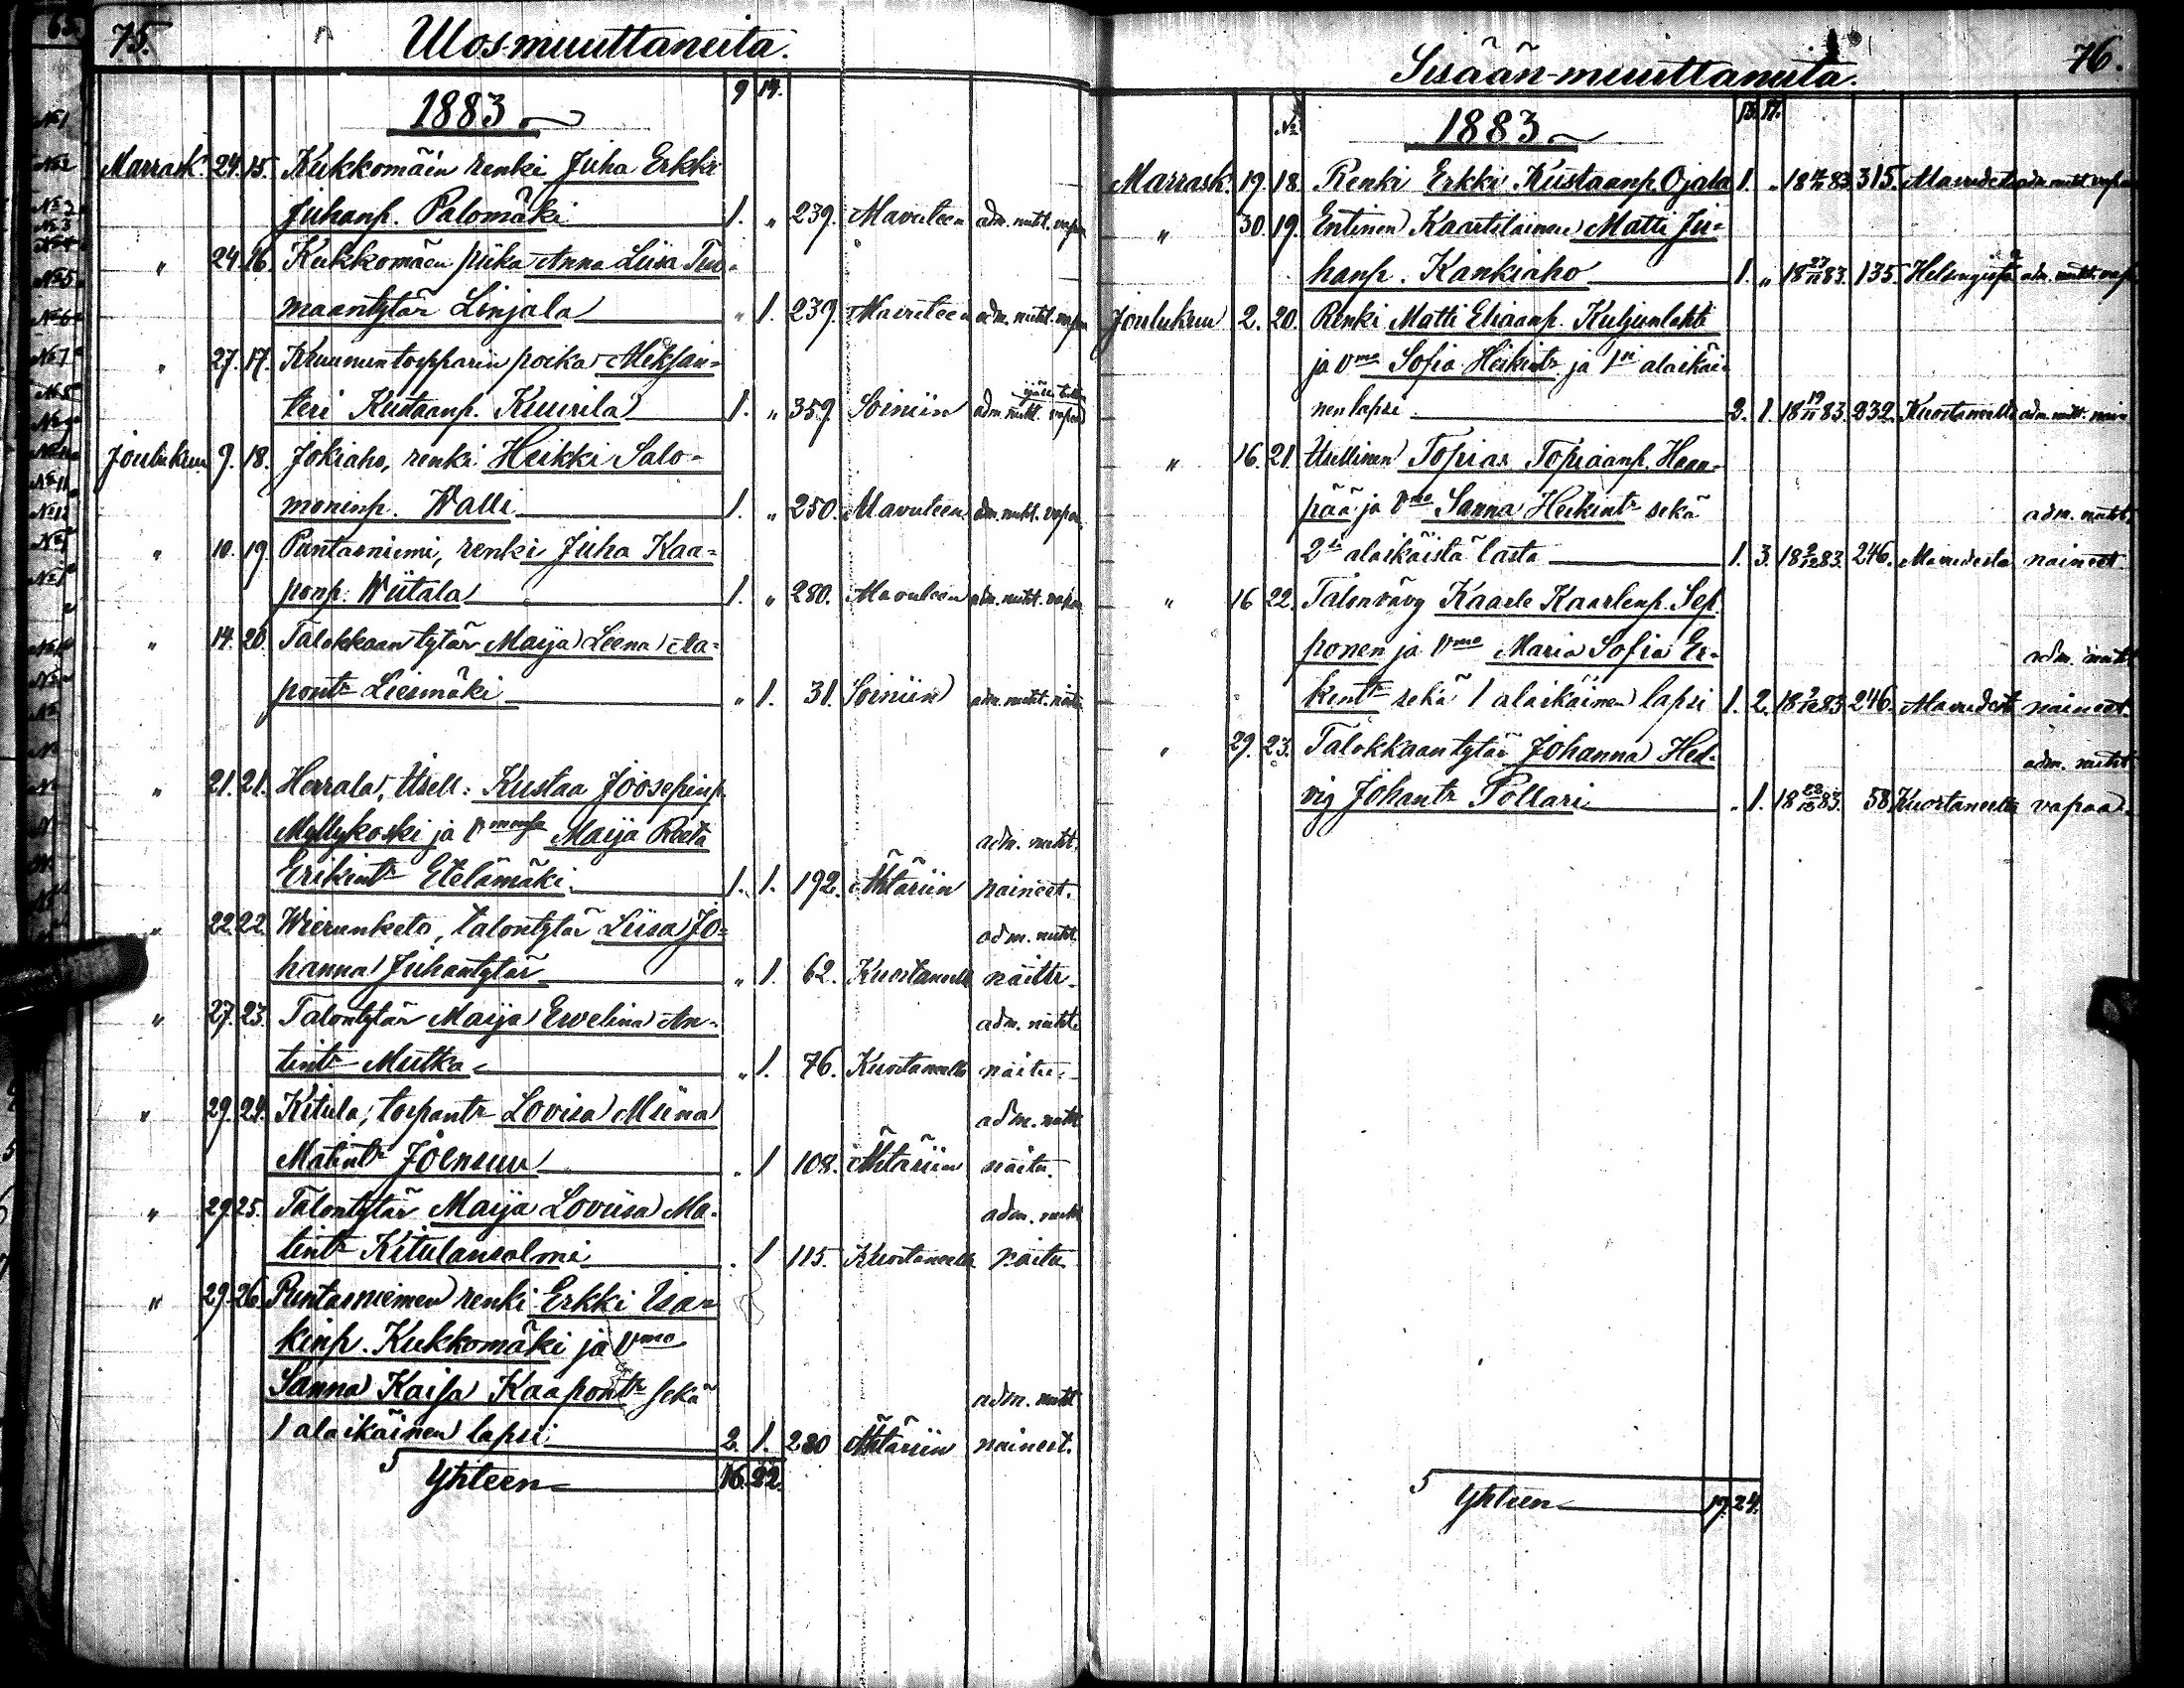 75.
Ulosmuuttaneita.
1883
9 14.
Marrask. 24. 15. Kukkomäin renki Juha Erkki
Juhanp. Palomäki 1. „ 239. Alavuteen adm. nuht. vapaa
„ 24. 16. Kukkomäen piika Anna Liisa Tuo-
maantytär Linjala „ 1. 239. Alavuteen adm. nuht. vapaa
„ 27. 17. Kruununtorpparin poika Aleksan-
teri Kustaanp. Kuurila 1. „ 359. Soiniin adm. nuht. vapaa
Joulukuu 9. 18. Jokiaho, renki Heikki Salo-
moninp. Walli 1. „ 250. Alavuteen adm. nuht. vapaa
„ 10. 19. Puntarniemi, renki Juha Kaa-
ponp. Wiitala 1. „ 280. Alavuteen adm. nuht. vapaa
„ 14. 20. Talokkaan tytär Maija Leena Aa-
pontr Liesmäki „ 1. 31. Soiniin adm. nuht.
„ 21. 21. Herrala, Itsell: Kustaa Joosepinp.
Myllykoski ja Vmonsa Maija Reeta adm. nuht.
Erikintr Etelämäki 1. 1. 192. Ähtäriin naineet.
„ 22. 22. Wierunketo, talontytär Liisa Jo-
adm. nuht.
hanna Juhantytär „ 1. 62. Kuortaneelle naittu.
„ 27. 23. Talontytär Maija Ewelina An-
adm. nuht.
tintr Mutka „ 1. 76. Kuortaneelle naittu.
„ 29. 24. Kitula, torpantr Lovisa Miina
adm. nuht
Matintr Joensuu „ 1 108. Ähtäriin naitu.
„ 29. 25. Talontytär Maija Loviisa Ma-
adm. nuht
tintr Kitulansalmi „ 1 115. Kuortaneelle naitu
„ 29. 26. Puntarniemen renki Erkki Isa-
kinp. Kukkomäki ja Vmo
Sanna Kaisa Kaapontr sekä adm. nuht
1 alaikäinen lapsi 2. 1. 280 Ähtäriin naineet.
Yhteen 16. 22.
76.
Sisään-muuttaneita.
No 1883 13. 17.
Marrask. 19. 18. Renki Erkki Kustaanp. Ojala 1. „ 315. Alavudesta adm. nuht. vapaa
„ 30. 19. Entinen Kaartilainen Matti Ju-
hanp. Kankiaho 1. „ 18 27/11 83. 135. Helsingistä adm. nuht. vapaa
Joulukuu 2. 20. Renki Matti Eliaanp. Kuljunlahti
ja Vmo Sofia Heikintr ja 1si alaikäi-
nen lapsi 2. 1. 18 19/11 83. 232. Kuortaneelta adm. nuht. nain
„ 16. 21. Itsellinen Topias Topiaanp. Haan-
pää ja Vmo Sanna Heikintr sekä adm. nuht.
2si alaikäistä lasta 1. 3. 18 2/12 83. 246. Alavudesta naineet
„ 16 22. Talonvävy Kaarle Kaarlenp. Sep-
ponen ja Vmo Maria Sofia Er- adm. nuht
kintr sekä 1 alaikäinen lapsi 1. 2. 18 2/12 83 246. Alavudesta naineet.
„ 29. 23. Talokkaan tytär Johanna Hed-
adm. nuht
vig Johantr Pollari „ 1. 83. 58 Kuortaneelta vapaa.
Yhteen 17. 24.